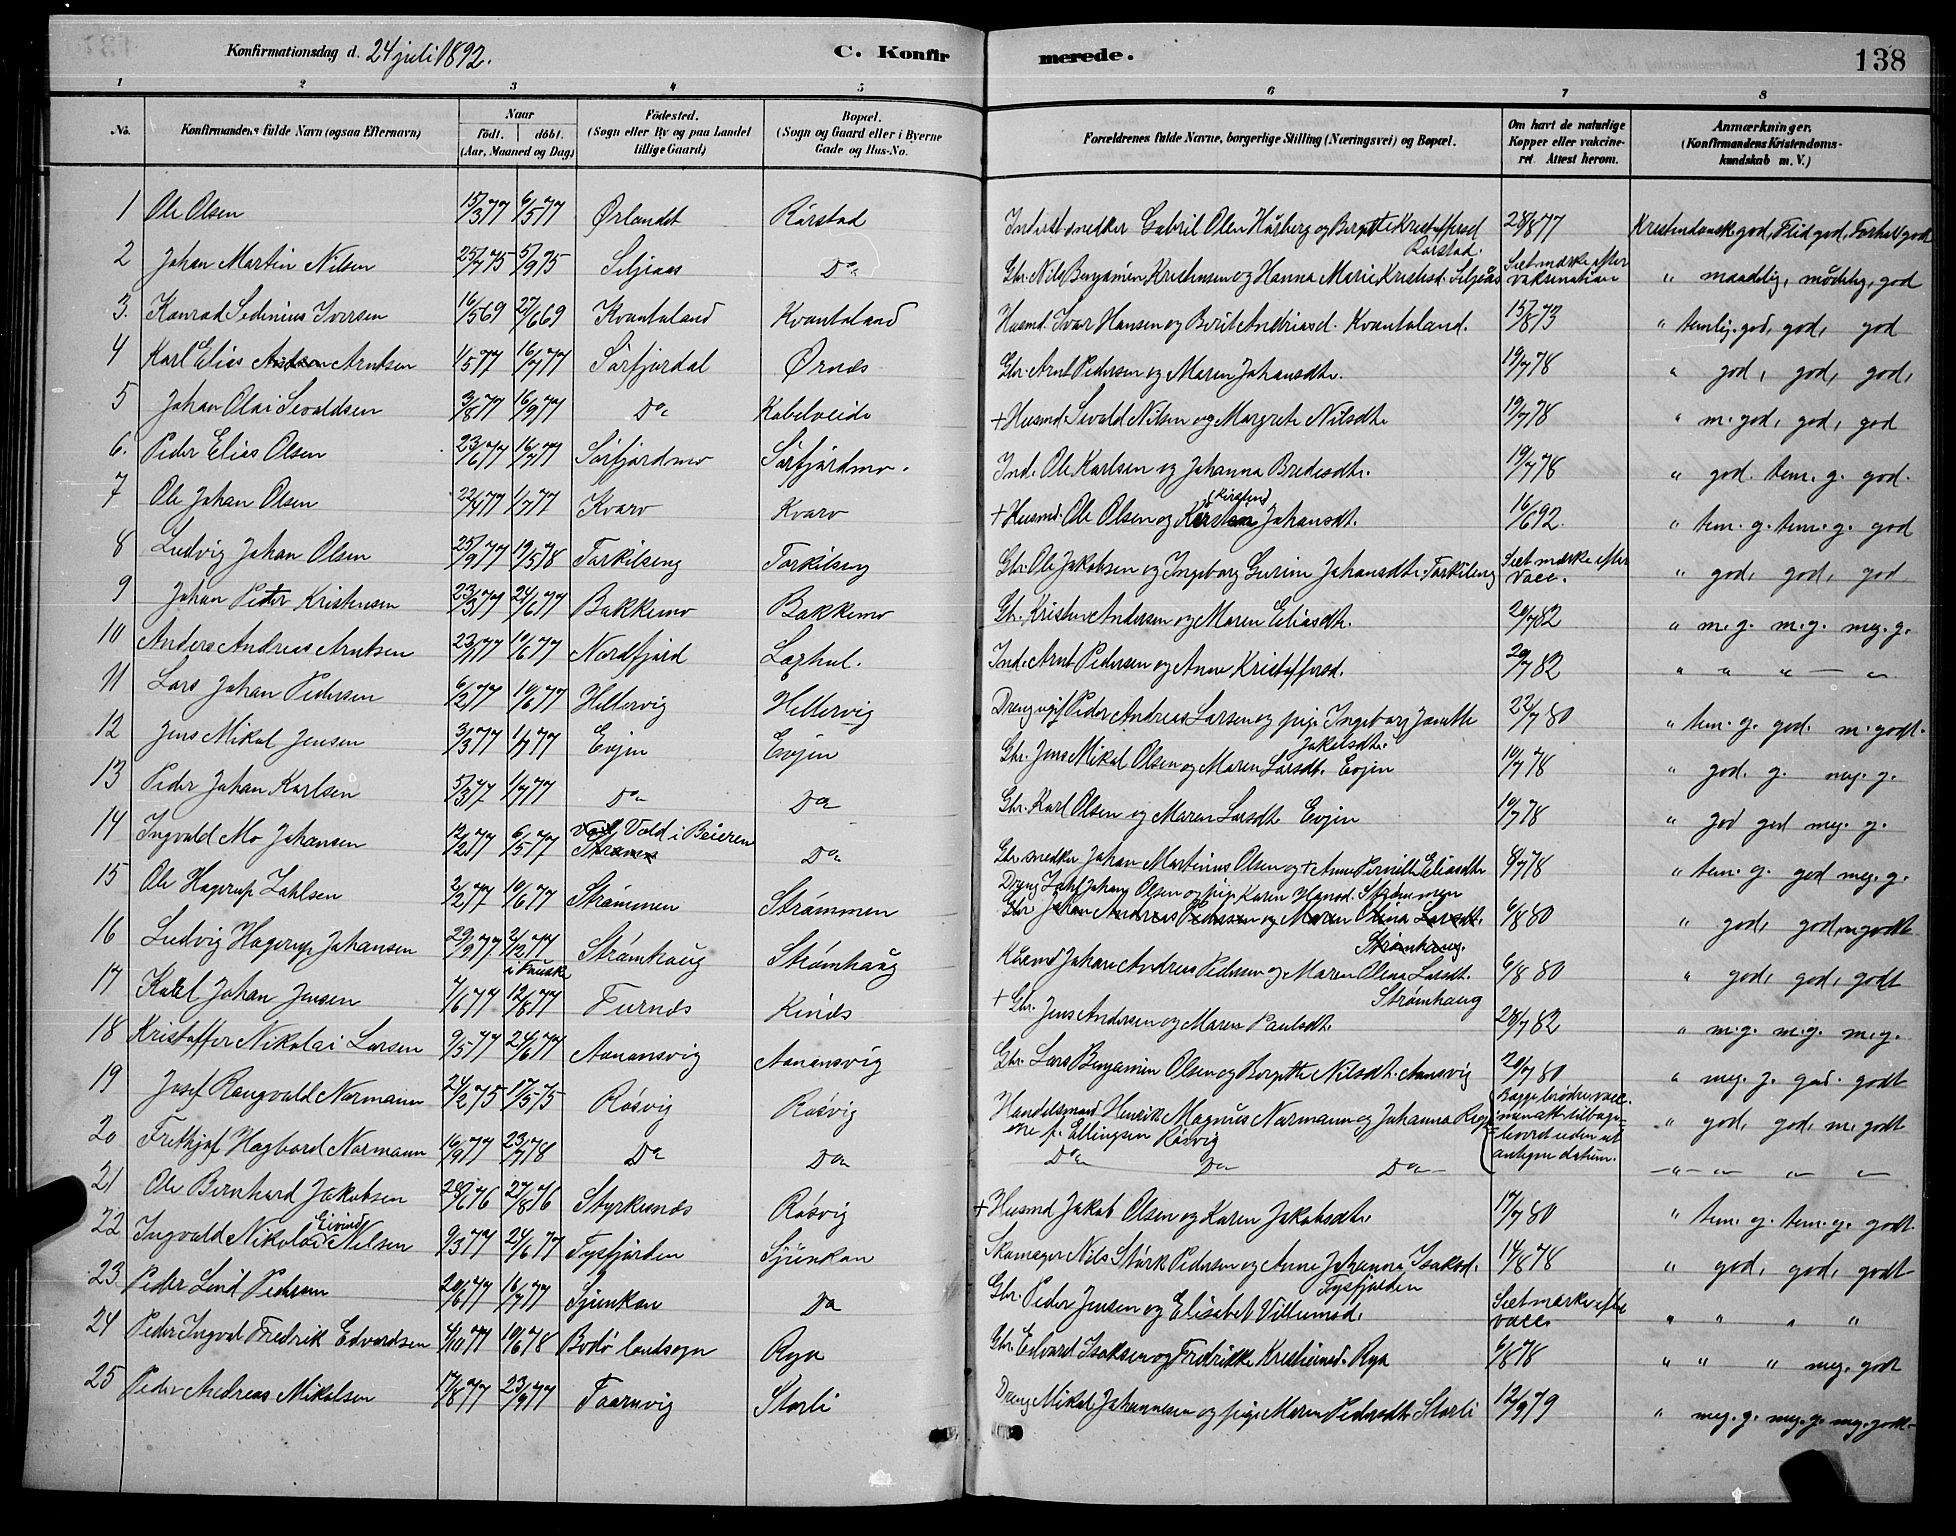 Konfirmationsdag d. 24 juli 1892. C. Konfirmerede. 138
1 2 3 4 5 6 7 8
No. Konfirmandens fulde Navn (ogsaa Efternavn) Naar født. døbt. (Aar, Maaned og Dag) Fødested. (Sogn eller By og paa Landet tillige Gaard) Bopæl. (Sogn og Gaard eller i Byerne Gade og Hus-No. Forældrenes fulde Navne, borgerlige Stilling (Næringsvei) og Bopæl. Om havt de naturlige Kopper eller vakcineret. Attest herom. Anmærkninger. (Konfirmandens Kristendomskundskab m. V.)
1 Ole Olsen 15/3 77 6/5 77 Ørlandet Rørstad Inderst snedker Gabril Olsen Hårberg og Bergitte Kristoffersd Rørstad. 28/8 77 Kristendomsk. god, Flid god, Forhol godt
2 Johan Martin Nilsen 25/7 75 5/9 75 Siljeaas Do Gbr. Nils Benjamin Kristensen og Hanna Marie Kristesd. Siljeås Seet mærke efter vaksination " maadelig, mådelig, god
3. Konrad Sedinius Iversen 16/5 69 27/6 69 Kvantoland Kvantoland Husmd. Ivar Hansen og Berit Andriasd. Kvantoland. 15/8 73 " temlig. god, god, god
4 Karl Elias Arntsen 1/5 77 16/7 77 Sørfjordal Ørnes Gbr. Arnt Pedersen og Maren Johansdtr. 19/7 78 " god, god, god,
5 Johan Olai Sevaldsen 3/8 77 16/9 77 Do Kabelveide + Husmd. Sevald Nilsen og Margrete Nilsdtr 19/7 78 " m. god, god, god
6. Peder Elias Olsen 23/6 77 16/7 77 Sørfjordmo Sørfjordmo. Ind. Ole Karlsen og Johanna Bredesdtr. 19/7 78 " god. tem. g. god.
7 Ole Johan Olsen 22/4 77 1/7 77 Kvarv Kvarv + Husmd. Ole Olsen og (Kirsten) Johansdt. 16/6 92. " tem. g. tem. g. god
8 Ludvig Johan Olsen 25/9 77 19/5 78 Torkilseng Torkilseng Gbr. Ole Jakobsen og Ingeborg Gurine Johansdtr. Torkileng Seet mærke efter vacc. " god, god, god
9 Johan Peder Kristensen 23/3 77 24/6 77 Bakkemo Bakkemo Gbr. Kristen Andersen og Maren Eliasdtr. 20/7 82 " m. g. m. g. meg. g.
10 Anders Andreas Arntsen 23/1 77 10/6 77 Nordfjord Laxhol. Ind. Arnt Pedersen og Anne Kristoffersd. 20/7 82 " " " — "
11 Lars Johan Pedersen 6/2 77 10/6 77 Hellervig Hellervig Dreng ugift Peder Andreas Larsen og pige Ingeborg Janette Jakobsdtr. 22/7 80 " tem. g. god. m. godt.
12 Jens Mikal Jensen 3/3 77 1/7 77 Evjen Evjen Gbr. Jens Mikal Olsen og Maren Larsdt. Evjen 10/7 78 " god. g. meg. g.
13 Peder Johan Karlsen 5/3 77 1/7 77 Do Do Gbr. Karl Olsen og Maren Larsdtr Evjen 10/7 78 " god god meg. g.
14 Ingvald Mo Johansen 12/2 77 6/5 77 Vold i Beieren Do Gbr. snedker Johan Martinus Olsen og + Anne Pernille Eliasdtr 8/7 78 " tem. g. god meg. g.
15 Ole Hagerup Zahlsen 2/2 77 10/6 77 Strømmen Strømmen Dreng Zahl Johan Olsen og pige Karen Hansd. Strømmen Gbr. Johan Andreas Pedersen og Maren Olina Larsdt. Strømhaug. 6/8 80 " god, god, m godt
16 Ludvig Hagerup Johansen 29/9 77 2/12 77 i Fauske Strømhaug Strømhaug Husmd Johan Andreas Pedersen og Maren Olina Larsdt. Strømhaug 6/8 80 " god, god, godt
17 Karl Johan Jensen 7/6 77 12/6 77 Furnes Kines + Gbr. Jens Andersen og Maren Paulsdt. 20/7 82 " m. g. m. g. m. g.
18 Kristoffer Nikolai Larsen 9/5 77 24/6 77 Aanansvig Aanansvig Gbr. Lars Benjamin Olsen og Bergitte Nilsdt. Aansvig 20/7 80 " meg. g. god. godt
19 Josef Rangvald Normann 24/2 75 17/5 75 Røsvig Røsvig Handelsmand Henrik Magnus Normann og Johanna f. Ellingsen Røsvig Begge brødres vaccinenatt. tilbageleverd uden at antegne datum. " god, god, m. godt
20 Frithjof Hagbard Normann 16/9 77 23/7 78 Do Do Do Do Do — " — " " "
21 Ole Bernhard Jakobsen 20/6 76 27/8 76 Styrkesnes Røsvig + Husmd Jakob Olsen og Karen Jakobsdtr 17/7 80 " tem. g. tem. g. godt
22 Ingvald Nikolai Eivind Nilsen 9/3 77 24/6 77 Tysfjorden Sjunkan Skomager Nils Stork Pedersen og Anne Johanna Isaksd. Tysfjorden 14/8 78 " god, god, godt
23 Peder Lind Pedersen 20/6 77 16/7 77 Sjunkan Do Gbr. Peder Jensen og Elisabet Villumsd. Seet mærke efter vacc. " " " "
24 Peder Ingval Fredrik Edvardsen 4/10 77 10/6 78 Bodø landsogn Rya Gbr. Edvard Isaksen og Fredrikke Kristiansd. Rya 6/8 78 " " " meg. godt
25 Peder Andreas Mikalsen 17/8 77 23/9 77 Taarnvig Storli Dreng Mikal Johannesen og pige Maren Pedersdtr Storli 12/9 79 " meg. g. meg. g. meg. godt.